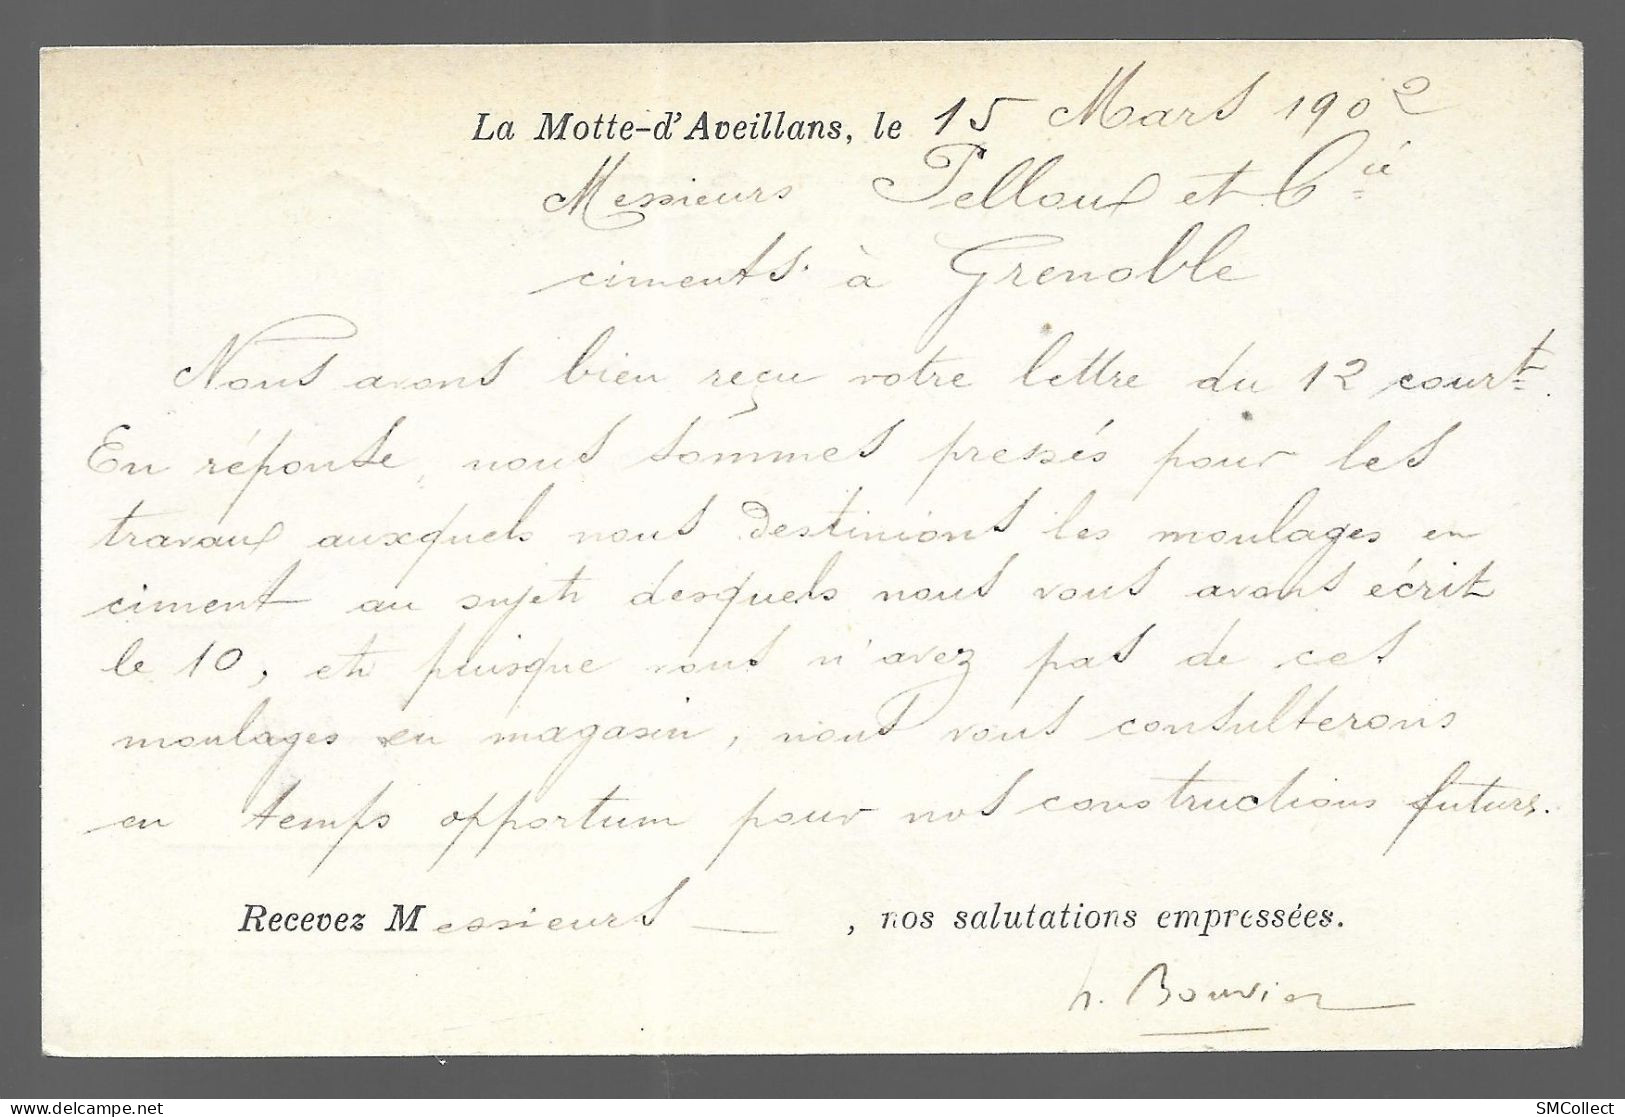 La Motte-d'Aveillans, le 15 Mars 1902
Messieurs Pelloux et Cie
ciments à Grenoble
Nous avons bien reçu votre lettre du 12 court.
En réponse, nous sommes pressés pour les
travaux auxquels nous destinions les moulages en
ciment au sujet desquels nous vous avons écrit
le 10, et puisque vous n'avez pas de ces
moulages en magasin, nous vous consulterons
en temps opportum pour nos constructions futures.
Recevez Messieurs, nos salutations empressées.
h. Bouvier
SMCollect